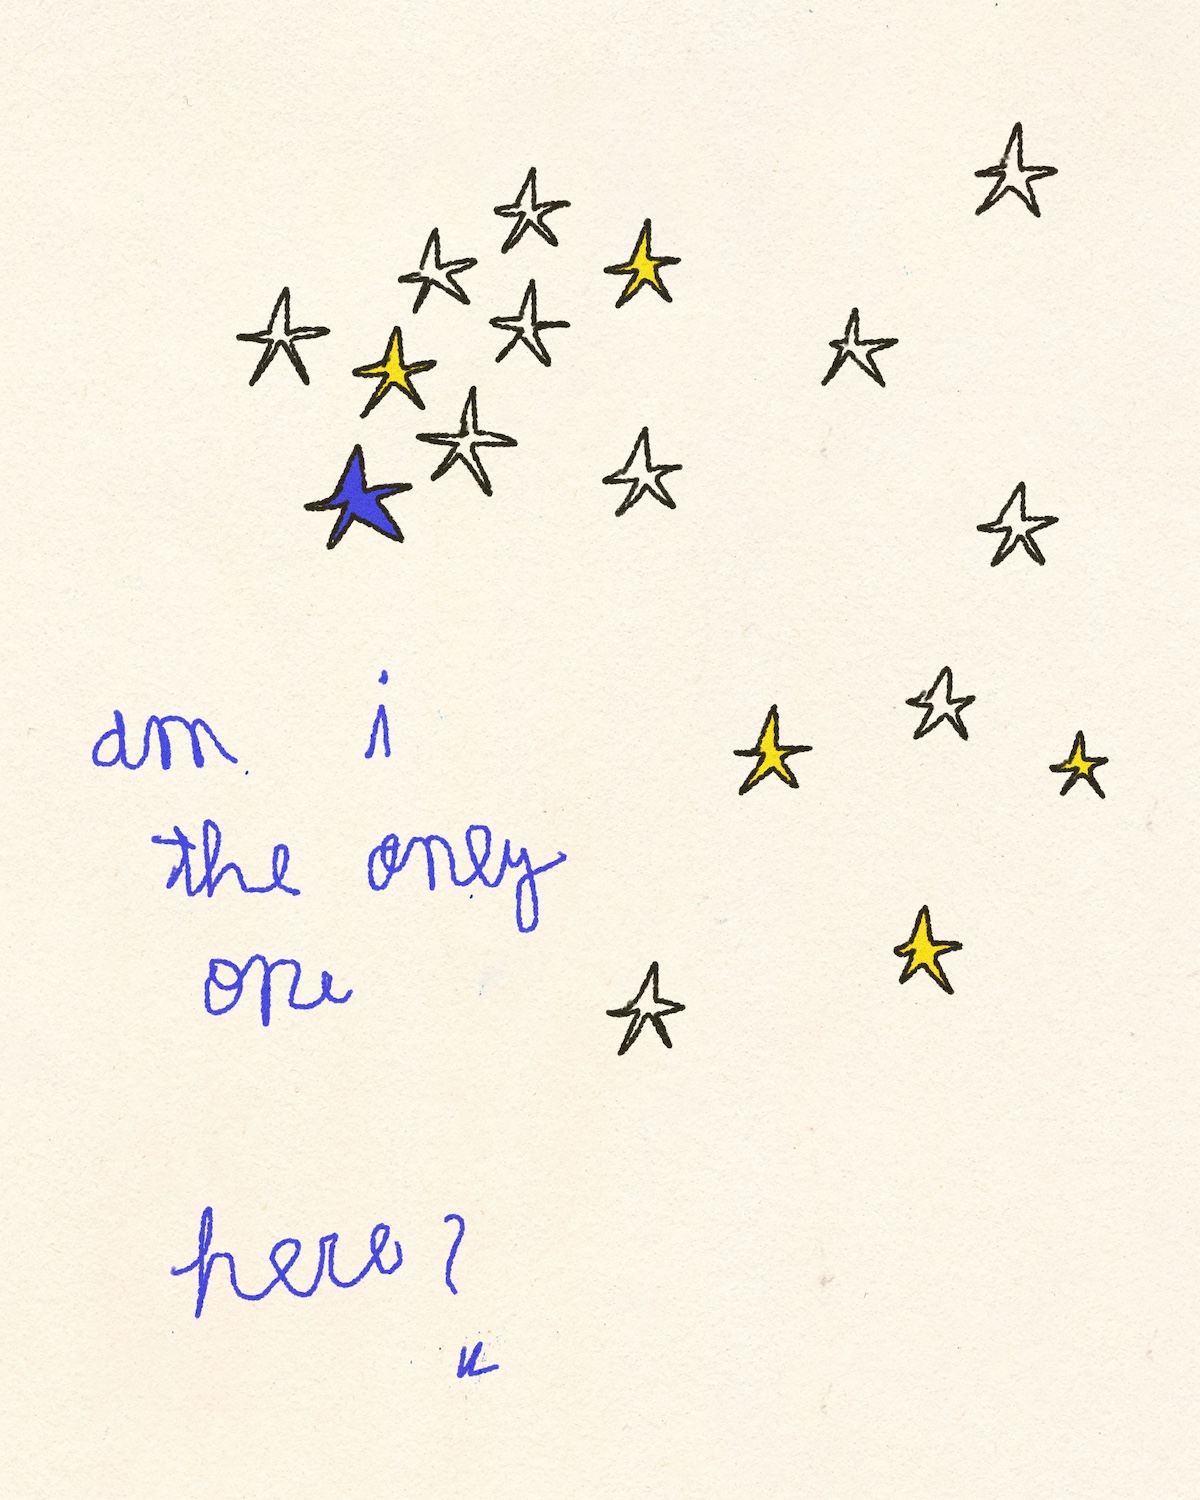 am i
the only
one
here?